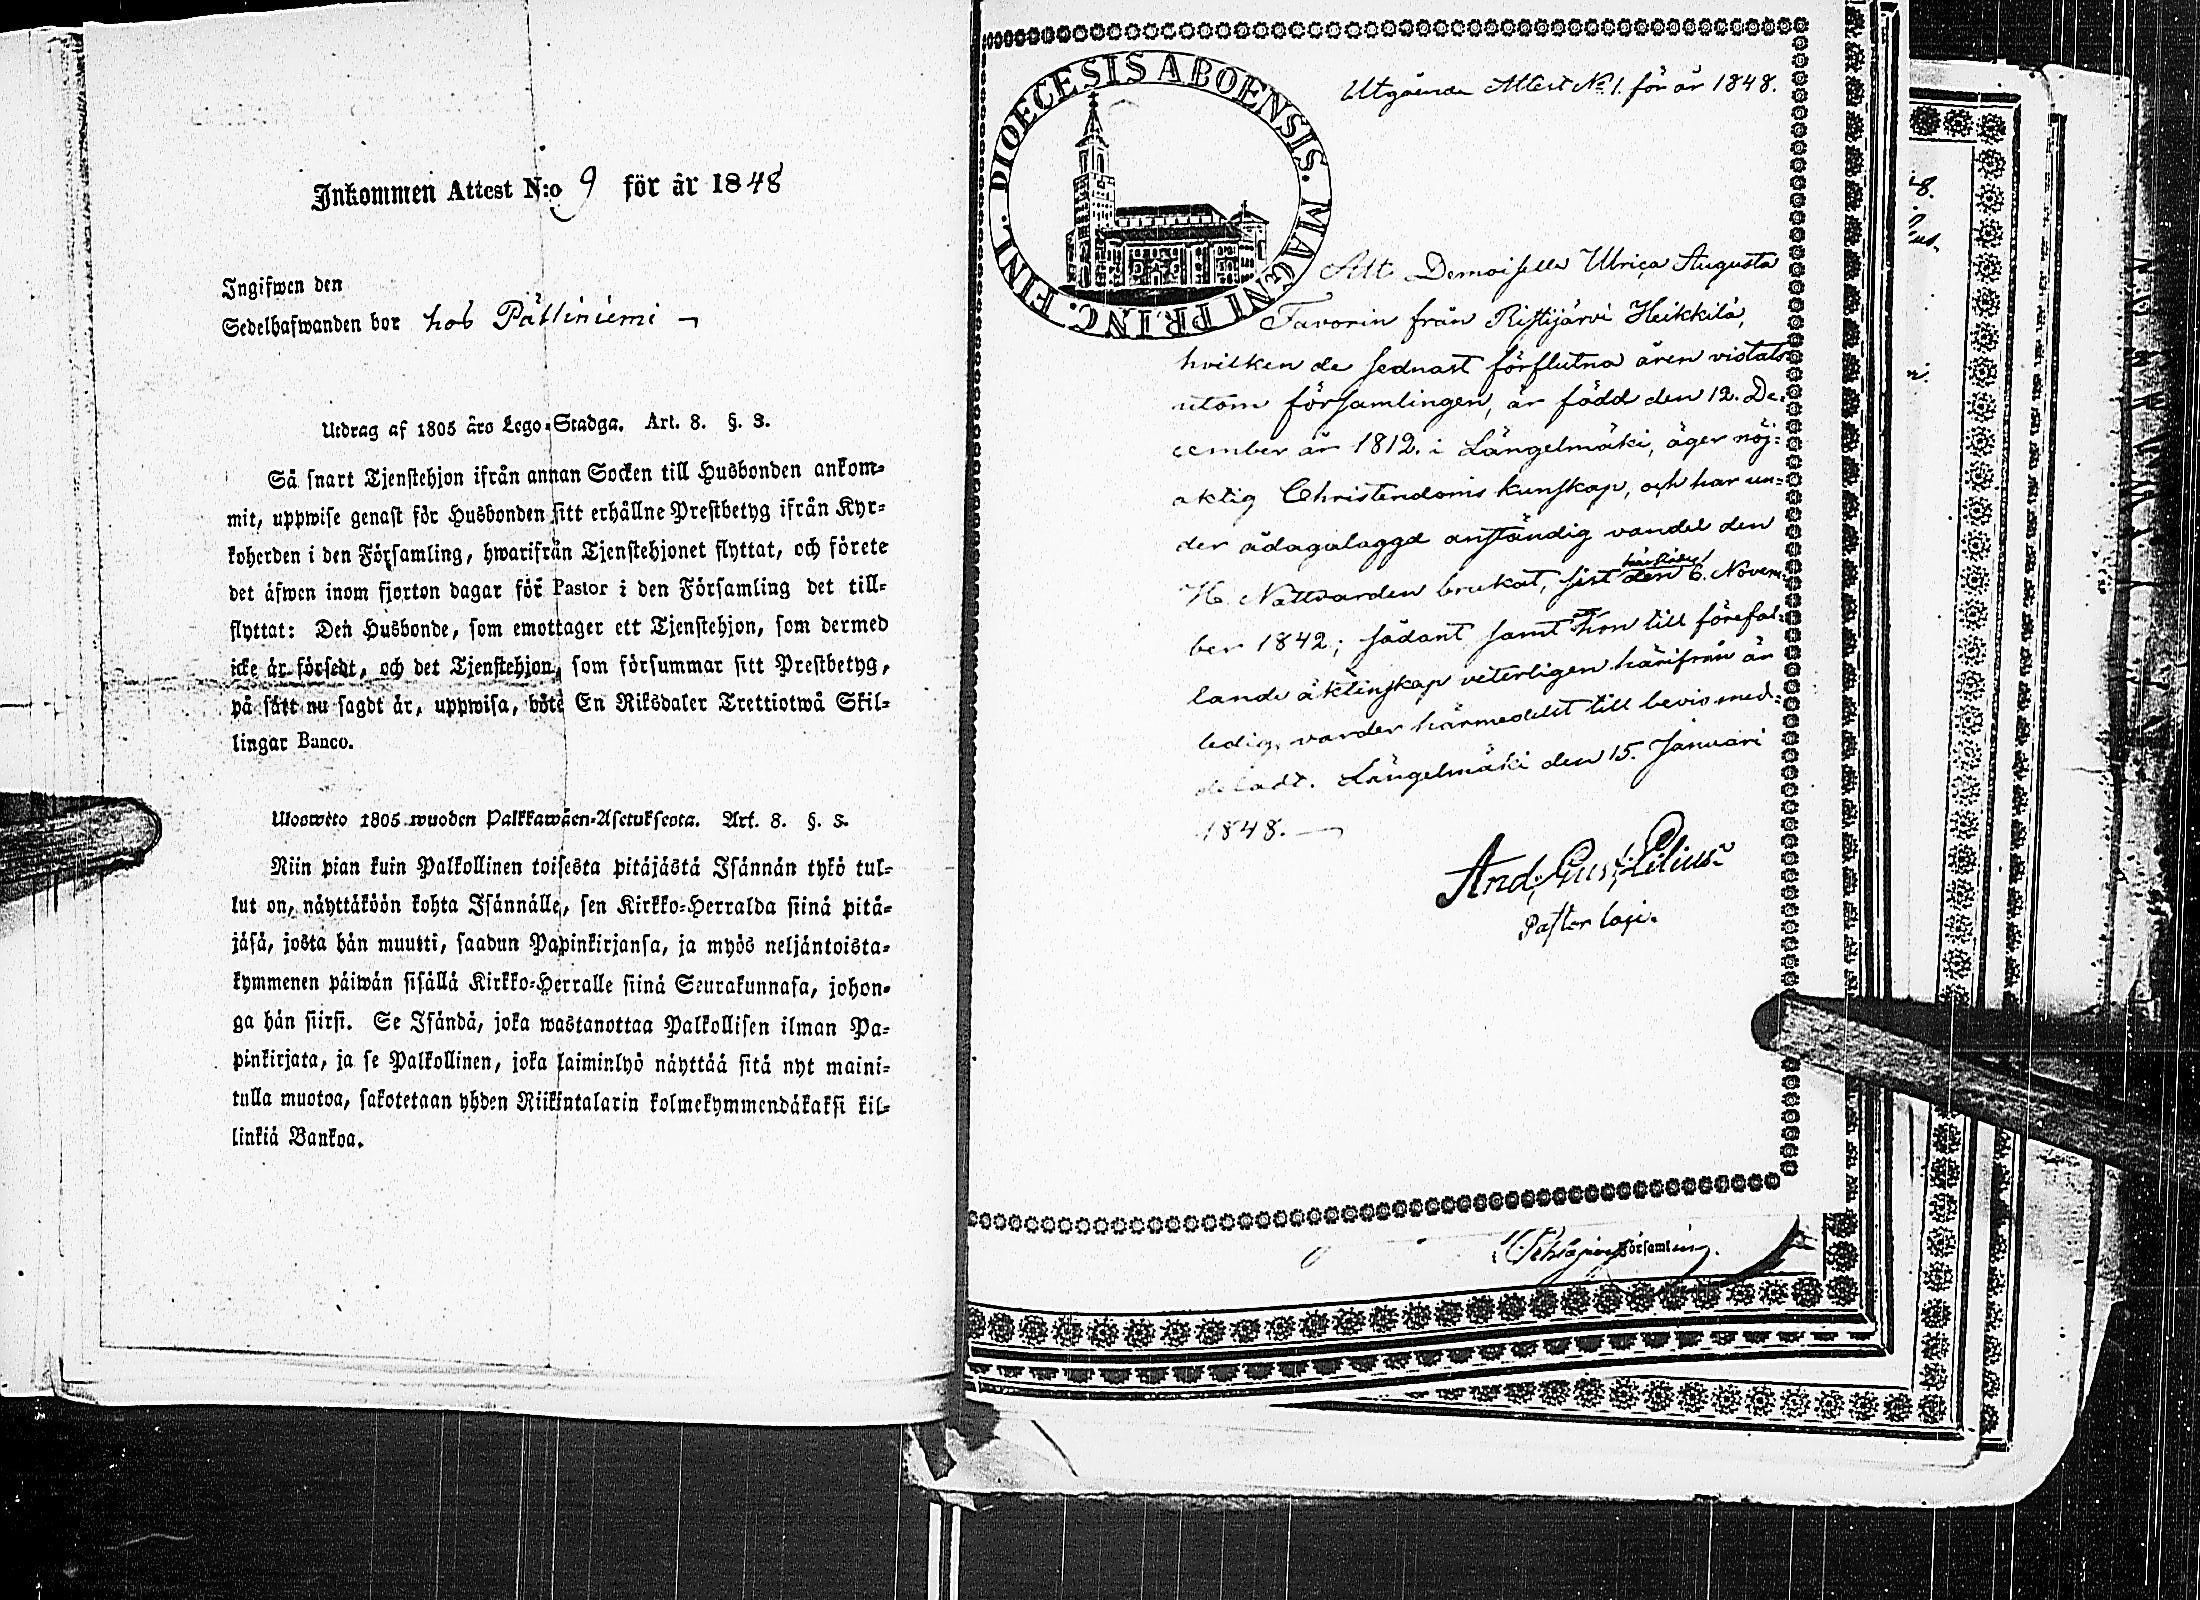 Inkommen Attest N:o 9 för år 1848
Ingifwen den
Sedelhafwanden bor hos Pätiniemi
Utdrag af 1805 års Lego-Stadga. Art. 8. §. 3.
Så snart Tjenstehjon ifrån annan Socken till Husbonden ankom-
mit, uppwise genast för Husbonden sitt erhållne Prestbetyg ifrån Kyr-
koherden i den Församling, hwarifrån Tjenstehjonet flyttat, och förete
det äfwen inom fjorton dagar för Pastor i den Församling det till-
flyttat: Den Husbonde, som emottager ett Tjenstehjon, som dermed
icke är försedt, och det Tjenstehjon, som försummar sitt Prestbetyg,
på sätt nu sagdt är, uppwisa, böte En Riksdaler Trettiotwå Skil-
lingar Banco.
Uloswèto 1805 wuoden Palkkawäen-Asetuksesta. Art. 8. §. 3.
Niin pian kuin Palkollinen toisesta pitäjästä Isännän tykö tul-
lut on, näyttäköön kohta Isännälle, sen Kirkko-Herralda siinä pitä-
jäsä, josta hän muutti, saadun Papinkirjansa, ja myös neljäntoista-
kymmenen päiwän sisällä Kirkko-Herralle siinä Seurakunnasa, johon-
ga hän siirsi. Se Isändä, joka wastanottaa Palkollisen ilman Pa-
pinkirjata, ja se Palkollinen, joka laiminlyö näyttää sitä nyt maini-
tulla muotoa, sakotetaan yhden Riikintalarin kolmekymmendäkaksi kil-
linkiä Bankoa.
DIOECESIS ABOENSIS. MAGNI PRINC. FINL.
Utgående Attest No 1. för år 1848.
Att Demoiselle Ulrica Augusta
Favorin från Ristijärvi Heikkilä,
hvilken de sednast förflutna åren vistats
utom församlingen, är född den 12. De-
cember år 1812. i Längelmäki, äger nöj-
aktig Christendoms kunskap, och har un-
der ådagalaggd anständig vandel den
H. Nattvarden brukat, sist härstädes den 6. Novem-
ber 1842; sådant samt hon till förefal-
lande äktenskap veterligen härifrån är
ledig, varder härmedelst till bevis med-
deladt. Längelmäki den 15. Januari
1848.
And. Gust. Lilius
Pastor loci.
församling.